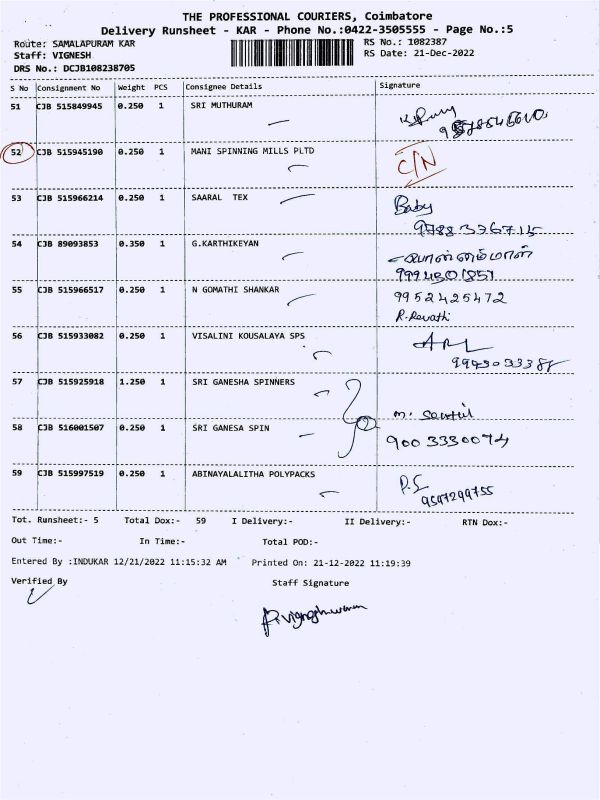 THE PROFESSIONAL COURIERS, Coimbatore
Delivery Runsheet - KAR - Phone No.:0422-3505555 - Page No.:5
Route: SAMALAPURAM KAR
RS No.: 1082387
Staff: VIGNESH
RS Date: 21-Dec-2022
DRS No.: DCJB108238705
S No Consignment No Weight PCS Consignee Details Signature
51 CJB 515849945 0.250 1 SRI MUTHURAM
52 CJB 515945190 0.250 1 MANI SPINNING MILLS PLTD C/N
53 CJB 515966214 0.250 1 SAARAL TEX Baby
9788336715
54 CJB 89093853 0.350 1 G.KARTHIKEYAN
55 CJB 515966517 0.250 1 N GOMATHI SHANKAR 9952425472
R.Revathi
56 CJB 515933082 0.250 1 VISALINI KOUSALAYA SPS
57 CJB 515925918 1.250 1 SRI GANESHA SPINNERS
M. Senthil
58 CJB 516001507 0.250 1 SRI GANESA SPIN 9003330074
59 CJB 515997519 0.250 1 ABINAYALALITHA POLYPACKS
9597299755
Tot. Runsheet:- 5 Total Dox:- 59 I Delivery:- II Delivery:- RTN Dox:-
Out Time:- In Time:- Total POD:-
Entered By :INDUKAR 12/21/2022 11:15:32 AM Printed On: 21-12-2022 11:19:39
Verified By Staff Signature